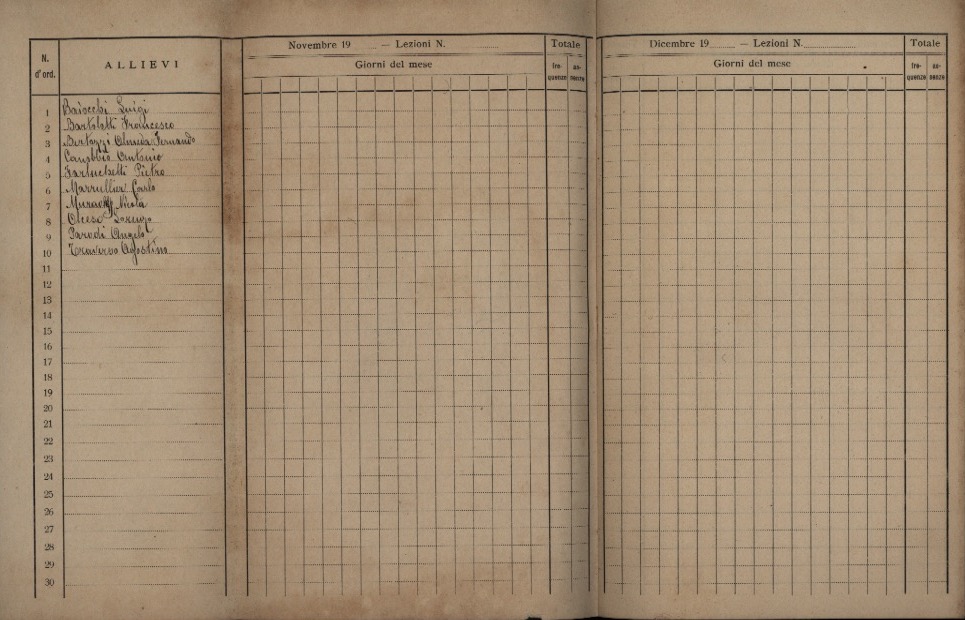 N. d'ord.
ALLIEVI
Novembre 19 — Lezioni N.
Totale
Giorni del mese
fre-quenze
as-senze
Dicembre 19 — Lezioni N.
Totale
Giorni del mese
fre-quenze
as-senze
1 Baiocchi Luigi
2 Bartoletti Francesco
3 Bertozzi Olmeda Fernando
4 Canobbio Antonio
5 Pietro
6 Carlo
7 Nicola
8 Lorenzo
9 Parodi Angelo
10 Traverso Agostino
11
12
13
14
15
16
17
18
19
20
21
22
23
24
25
26
27
28
29
30